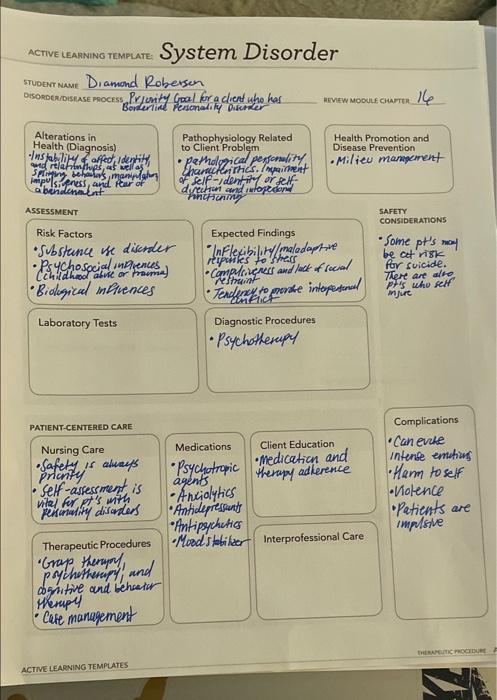 ACTIVE LEARNING TEMPLATE: System Disorder
STUDENT NAME Diamond Roberson
DISORDER/DISEASE PROCESS Priority Goal for a client who has
Borderline Personality Disorder
REVIEW MODULE CHAPTER 16
Alterations in
Health (Diagnosis)
•Instability of affect, identity,
and relationships, as well as
splitting behaviors, manipulation
impulsiveness, and fear of
abandonment
Pathophysiology Related
to Client Problem
• pathological personality
characteristics. Impairment
of self-identity or self-
direction and interpersonal
functioning
Health Promotion and
Disease Prevention
• Milieu management
ASSESSMENT
SAFETY
CONSIDERATIONS
Risk Factors
• Substance use disorder
• Psychosocial influences
(childhood abuse or trauma)
• Biological influences
Expected Findings
• Inflexibility/maladaptive
responses to stress
• Compulsiveness and lack of social
restraint
• Tendency to provoke interpersonal
conflict
• Some pt's may
be at risk
for suicide.
There are also
pt's who self
injure
Laboratory Tests
Diagnostic Procedures
• Psychotherapy
PATIENT-CENTERED CARE
Complications
• Can evoke
intense emotions
• Harm to self
• Violence
• Patients are
impulsive
Nursing Care
• Safety is always
priority
• Self-assessment is
vital for pt's with
personality disorders
Medications
• Psychotropic
agents
• Anxiolytics
• Antidepressants
• Antipsychotics
• Mood stabilizer
Client Education
• Medication and
therapy adherence
Therapeutic Procedures
• Group therapy,
psychotherapy, and
cognitive and behavior
therapy
• Case management
Interprofessional Care
ACTIVE LEARNING TEMPLATES
THERAPEUTIC PROCEDURE A